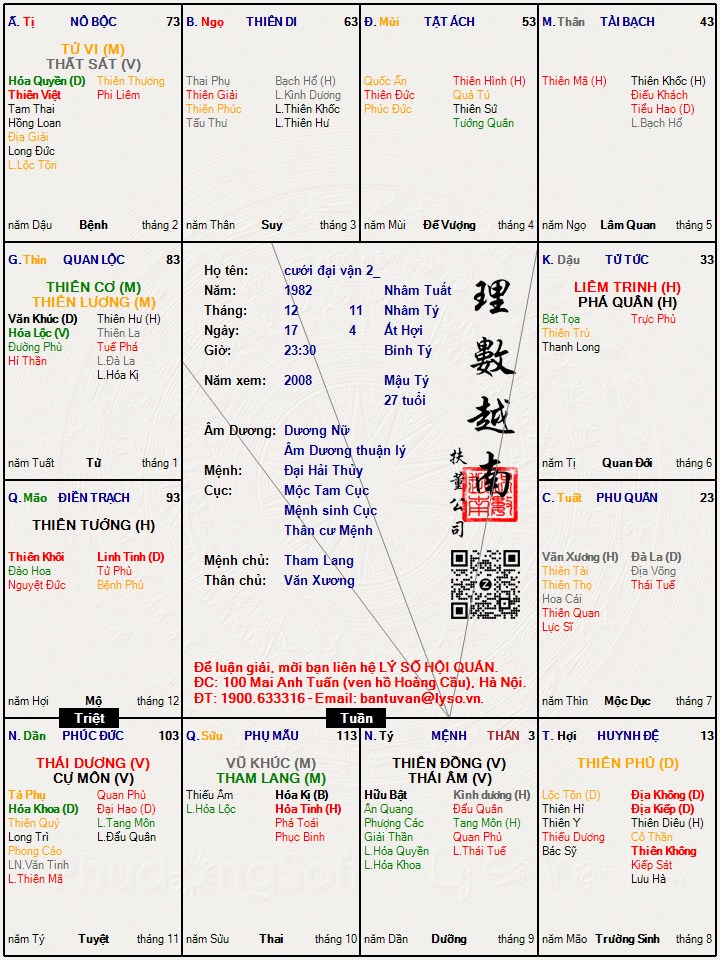 Ấ. Tị NÔ BỘC 73
TỬ VI (M)
THẤT SÁT (V)
Hóa Quyền (D) Thiên Thương
Thiên Việt Phi Liêm
Tam Thai
Hồng Loan
Địa Giải
Long Đức
L.Lộc Tồn
năm Dậu Bệnh tháng 2
B. Ngọ THIÊN DI 63
Thai Phụ Bạch Hổ (H)
Thiên Giải L.Kình Dương
Thiên Phúc L.Thiên Khốc
Tấu Thư L.Thiên Hư
năm Thân Suy tháng 3
Đ. Mùi TẬT ÁCH 53
Quốc Ấn Thiên Hình (H)
Thiên Đức Quả Tú
Phúc Đức Thiên Sứ
Tướng Quân
năm Mùi Đế Vượng tháng 4
M. Thân TÀI BẠCH 43
Thiên Mã (H) Thiên Khốc (H)
Điếu Khách
Tiểu Hao (D)
L.Bạch Hổ
năm Ngọ Lâm Quan tháng 5
G. Thìn QUAN LỘC 83
THIÊN CƠ (M)
THIÊN LƯƠNG (M)
Văn Khúc (D) Thiên Hư (H)
Hóa Lộc (V) Thiên La
Đường Phù Tuế Phá
Hỉ Thần L.Đà La
L.Hóa Kị
năm Tuất Tử tháng 1
Họ tên: cưới đại vận 2_
Năm: 1982 Nhâm Tuất
Tháng: 12 11 Nhâm Tý
Ngày: 17 4 Ất Hợi
Giờ: 23:30 Bính Tý
Năm xem: 2008 Mậu Tý
27 tuổi
Âm Dương: Dương Nữ
Âm Dương thuận lý
Mệnh: Đại Hải Thủy
Cục: Mộc Tam Cục
Mệnh sinh Cục
Thân cư Mệnh
Mệnh chủ: Tham Lang
Thân chủ: Văn Xương
理數越南
扶董公司
Để luận giải, mời bạn liên hệ LÝ SỐ HỘI QUÁN.
ĐC: 100 Mai Anh Tuấn (ven hồ Hoàng Cầu), Hà Nội.
ĐT: 1900.633316 - Email: bantuvan@lyso.vn.
K. Dậu TỬ TỨC 33
LIÊM TRINH (H)
PHÁ QUÂN (H)
Bát Tọa Trực Phù
Thiên Trù
Thanh Long
năm Tị Quan Đới tháng 6
Q. Mão ĐIỀN TRẠCH 93
THIÊN TƯỚNG (H)
Thiên Khôi Linh Tinh (D)
Đào Hoa Tử Phù
Nguyệt Đức Bệnh Phù
năm Hợi Mộ tháng 12
C. Tuất PHU QUÂN 23
Văn Xương (H) Đà La (D)
Thiên Tài Địa Võng
Thiên Thọ Thái Tuế
Hoa Cái
Thiên Quan
Lực Sĩ
năm Thìn Mộc Dục tháng 7
Triệt
Tuần
N. Dần PHÚC ĐỨC 103
THÁI DƯƠNG (V)
CỰ MÔN (V)
Tả Phụ Quan Phù
Hóa Khoa (D) Đại Hao (D)
Thiên Quý L.Tang Môn
Long Trì L.Đẩu Quân
Phong Cáo
LN.Văn Tinh
L.Thiên Mã
năm Tý Tuyệt tháng 11
Q. Sửu PHỤ MẪU 113
VŨ KHÚC (M)
THAM LANG (M)
Thiếu Âm Hóa Kị (B)
L.Hóa Lộc Hỏa Tinh (H)
Phá Toái
Phục Binh
năm Sửu Thai tháng 10
N. Tý MỆNH THÂN 3
THIÊN ĐỒNG (V)
THÁI ÂM (V)
Hữu Bật Kình dương (H)
Ân Quang Đẩu Quân
Phượng Các Tang Môn (H)
Giải Thần Quan Phủ
L.Hóa Quyền L.Thái Tuế
L.Hóa Khoa
năm Dần Dưỡng tháng 9
T. Hợi HUYNH ĐỆ 13
THIÊN PHỦ (D)
Lộc Tồn (D) Địa Không (D)
Thiên Hỉ Địa Kiếp (D)
Thiên Y Thiên Diêu (H)
Thiếu Dương Cô Thần
Bác Sỹ Thiên Không
Kiếp Sát
Lưu Hà
năm Mão Trường Sinh tháng 8